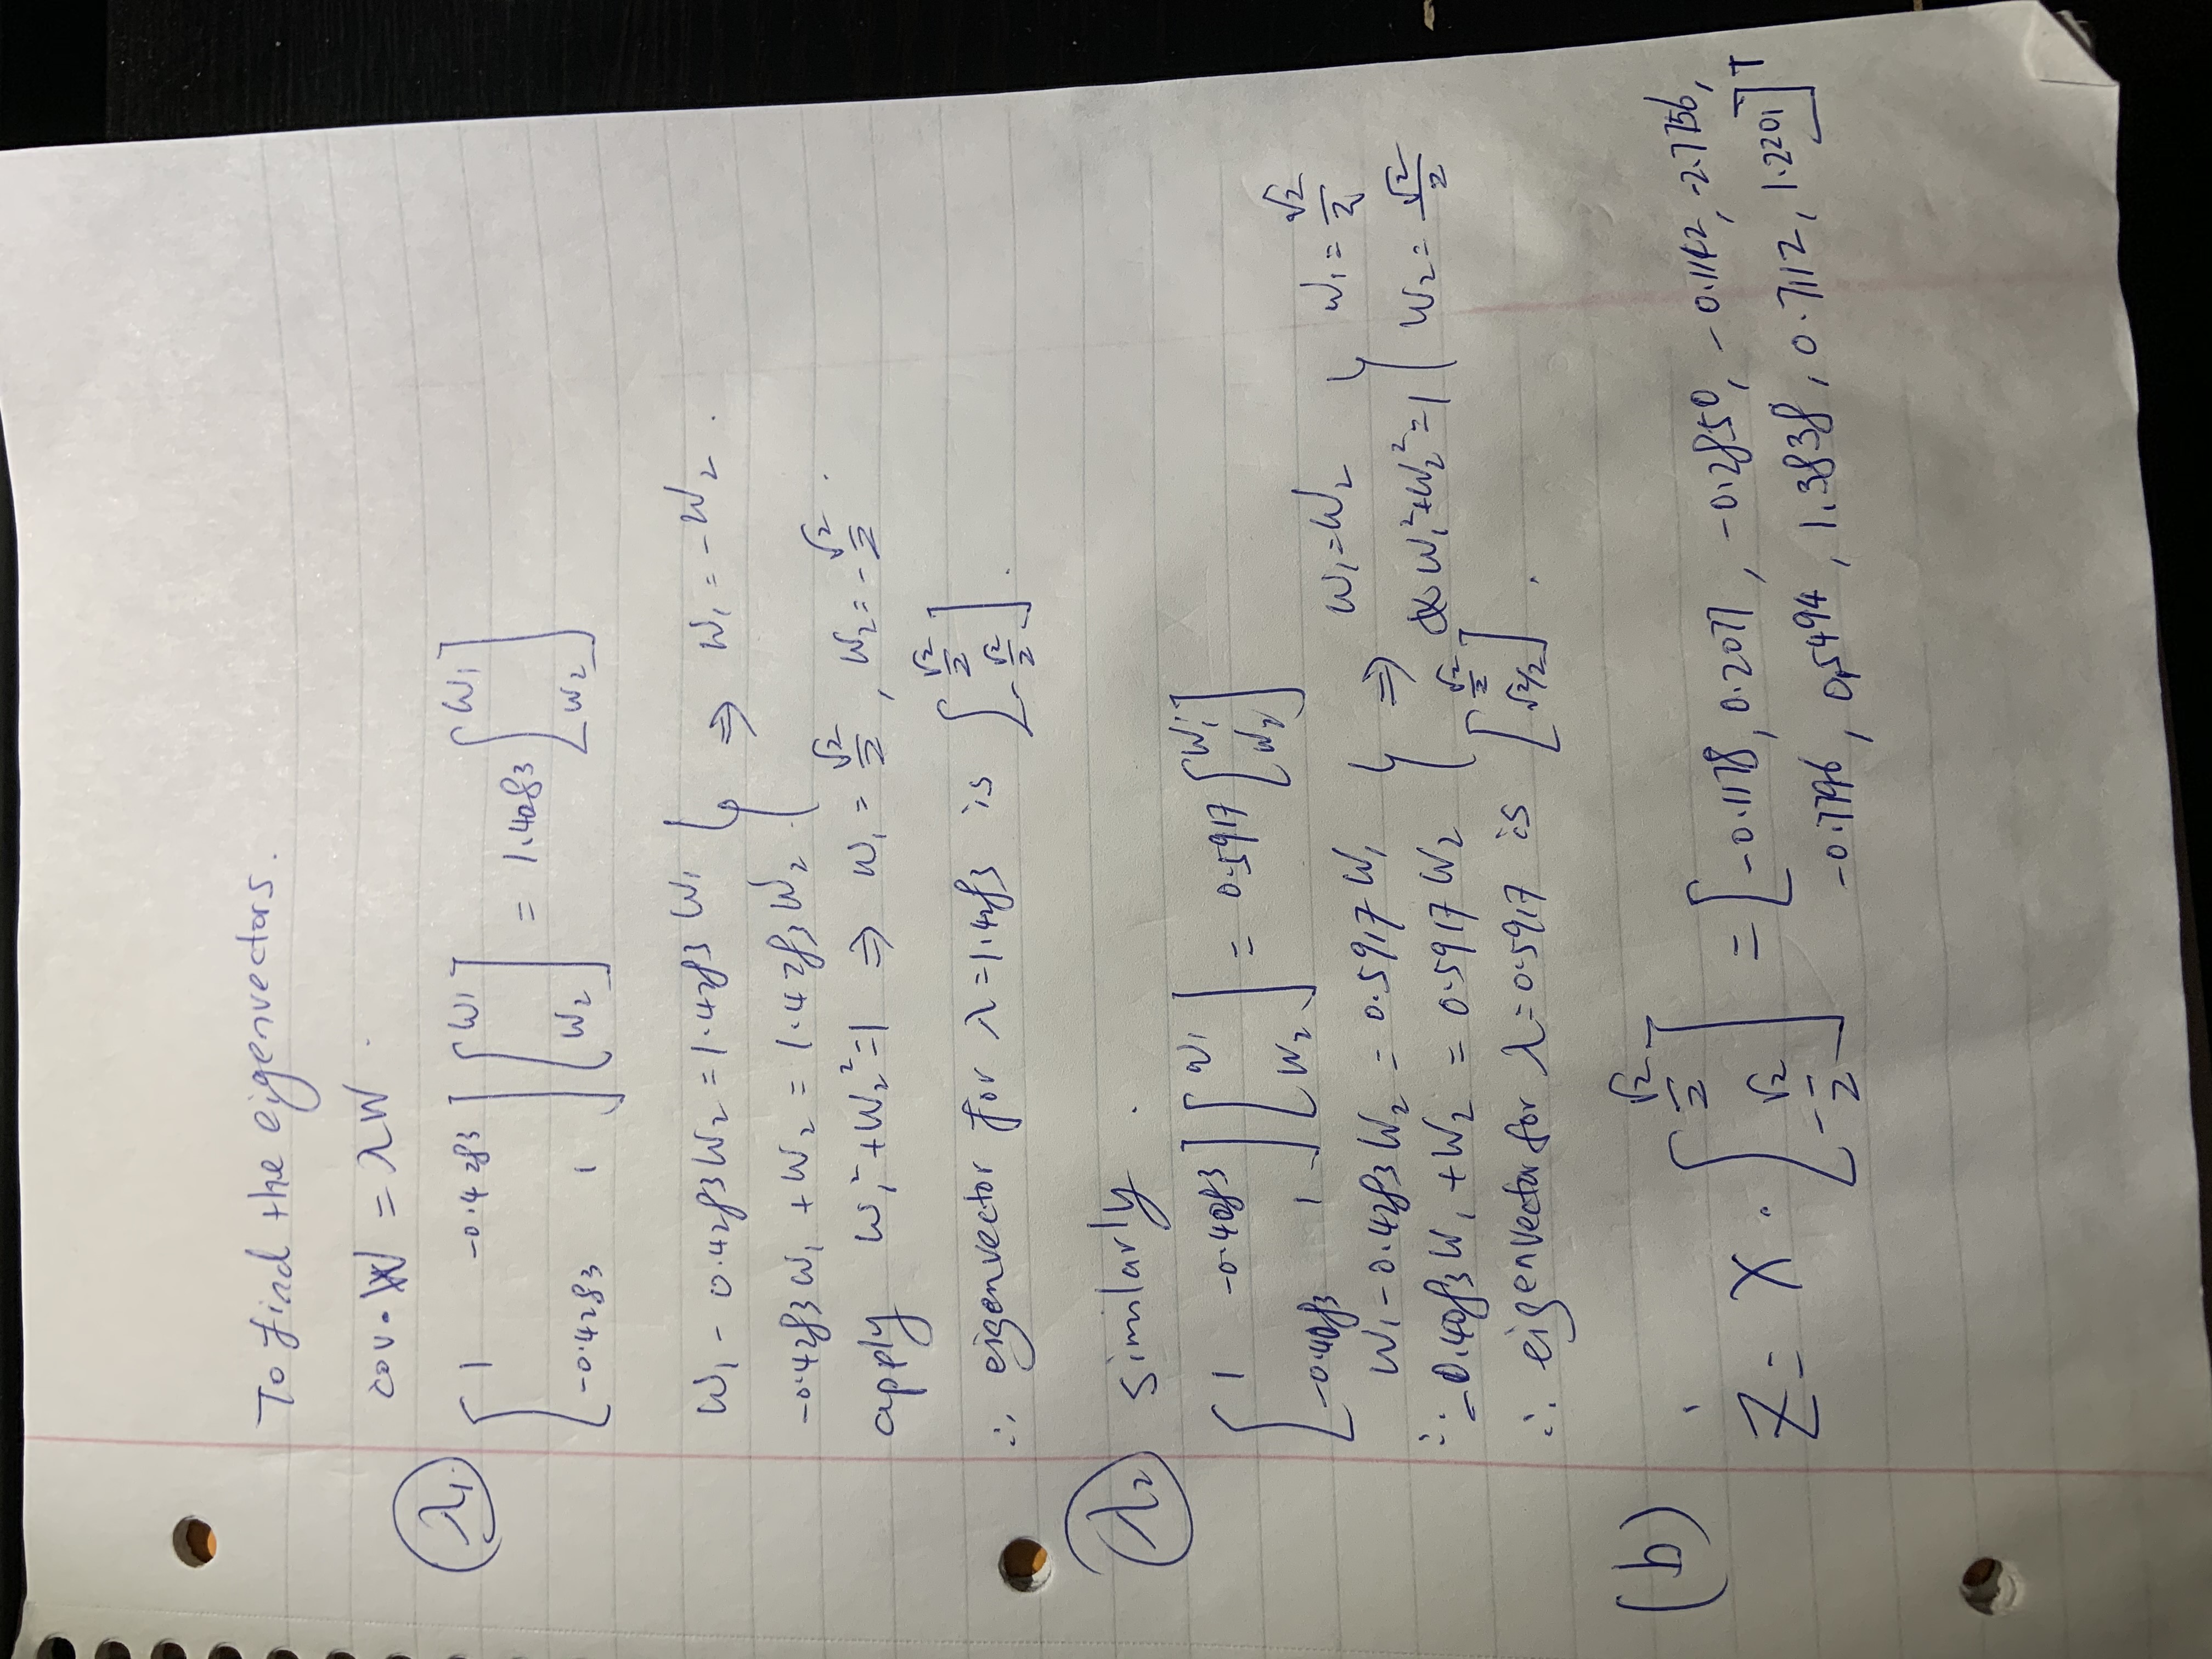 To find the eigenvectors.
cov·W = λW.
λ1
[1 -0.4283
-0.4283 1] [w1
w2] = 1.4083 [w1
w2]
w1 - 0.4283w2 = 1.4283 w1
-0.4283w1 + w2 = 1.4283w2 } ⇒ w1 = -w2.
apply w1² + w2² = 1 ⇒ w1 = √2/2, w2 = -√2/2.
∴ eigenvector for λ = 1.4283 is [√2/2
-√2/2].
λ2 similarly.
[1 -0.4083
-0.4083 1] [w1
w2] = 0.5917 [w1
w2]
∴ w1 - 0.4283w2 = 0.5917w1
-0.4083w1 + w2 = 0.5917w2 } ⇒ w1 = w2
w1² + w2² = 1 } w1 = √2/2
w2 = √2/2
∴ eigenvector for λ = 0.5917 is [√2/2
√2/2].
(b)
Z = X · [√2/2
-√2/2] = [-0.1178, 0.2077, -0.2850, -0.1142, -2.7756,
-0.7796, 0.5494, 1.3838, 0.7112, 1.2201]T